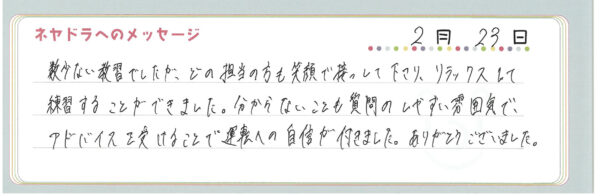 ネヤドラへのメッセージ
2月 23日
数少ない教習でしたが、どの担当の方も笑顔で接して下さり、リラックスして
練習することができました。分からないことも質問のしやすい雰囲気で、
アドバイスを受けることで運転への自信が付きました。ありがとうございました。